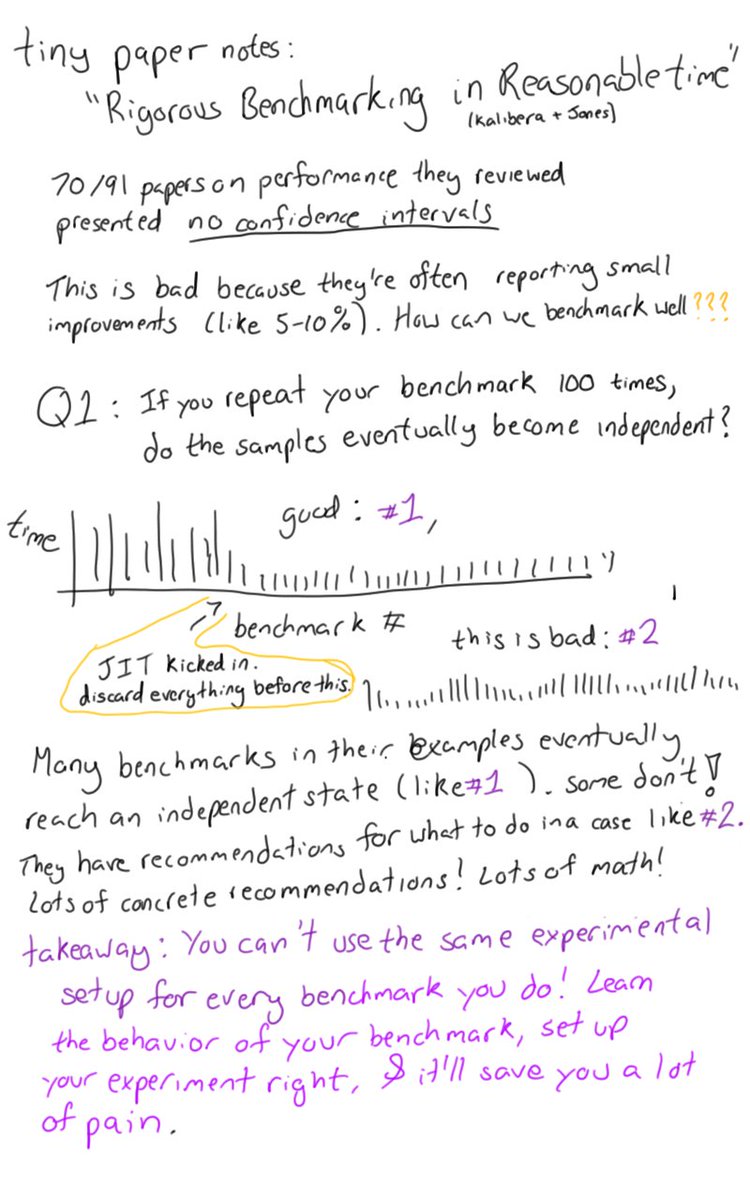 tiny paper notes:
"Rigorous Benchmarking in Reasonable time"
(Kalibera + Jones)
70/91 papers on performance they reviewed
presented no confidence intervals
This is bad because they're often reporting small
improvements (like 5-10%). How can we benchmark well???
Q1: If you repeat your benchmark 100 times,
do the samples eventually become independent?
time
good: #1,
benchmark #
this is bad: #2
JIT kicked in.
discard everything before this.
Many benchmarks in their examples eventually
reach an independent state (like #1 ). some don't!
They have recommendations for what to do in a case like #2.
Lots of concrete recommendations! Lots of math!
takeaway: You can't use the same experimental
setup for every benchmark you do! Learn
the behavior of your benchmark, set up
your experiment right, & it'll save you a lot
of pain.